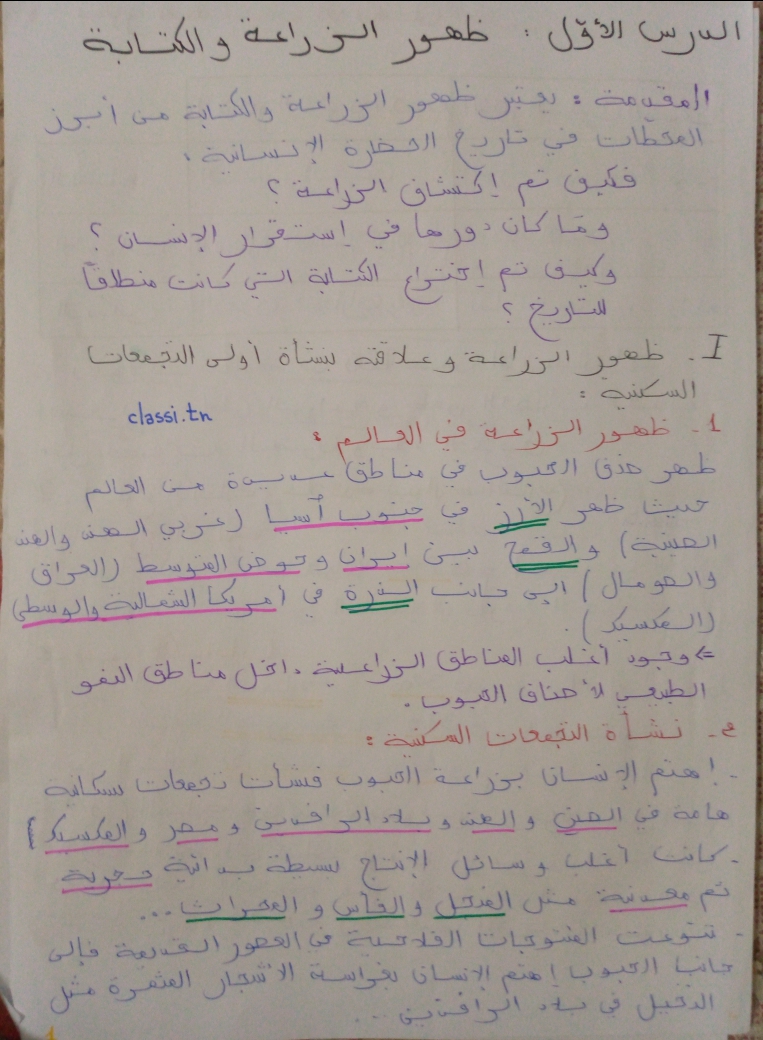 الدرس الأول : ظهور الزراعة والكتابة
المقدمة : يعتبر ظهور الزراعة والكتابة من أبرز
المحطات في تاريخ الحضارة الإنسانية .
فكيف تم إكتشاف الزراعة ؟
وما كان دورها في إستقرار الإنسان ؟
وكيف تم إختراع الكتابة التي كانت منطلقًا
للتاريخ ؟
I - ظهور الزراعة وعلاقته بنشأة أولى التجمعات
السكنية :
classi.tn
1 - ظهور الزراعة في العالم :
ظهر هذه الحبوب في مناطق عديدة من العالم
حيث ظهر الأرز في جنوب آسيا (غربي الهند والهند
الصينية) والقمح بين إيران وحوض المتوسط (العراق
والصومال) إلى جانب الذرة في أمريكا الشمالية والوسطى
(المكسيك).
=> وجود أغلب المناطق الزراعية داخل مناطق النمو
الطبيعي لأصناف الحبوب .
2 - نشأة التجمعات السكنية :
- إهتم الإنسان بزراعة الحبوب فنشأت تجمعات سكانية
هامة في الصين والهند وبلاد الرافدين ومصر والمكسيك
- كانت أغلب وسائل الإنتاج بسيطة بدائية حجرية
ثم معدنية مثل المنجل والفأس والمحراث ...
- تنوعت المنتوجات الفلاحية في العصور القديمة فإلى
جانب الحبوب إهتم الإنسان بغراسة الأشجار المثمرة مثل
النخيل في بلاد الرافدين ...
1